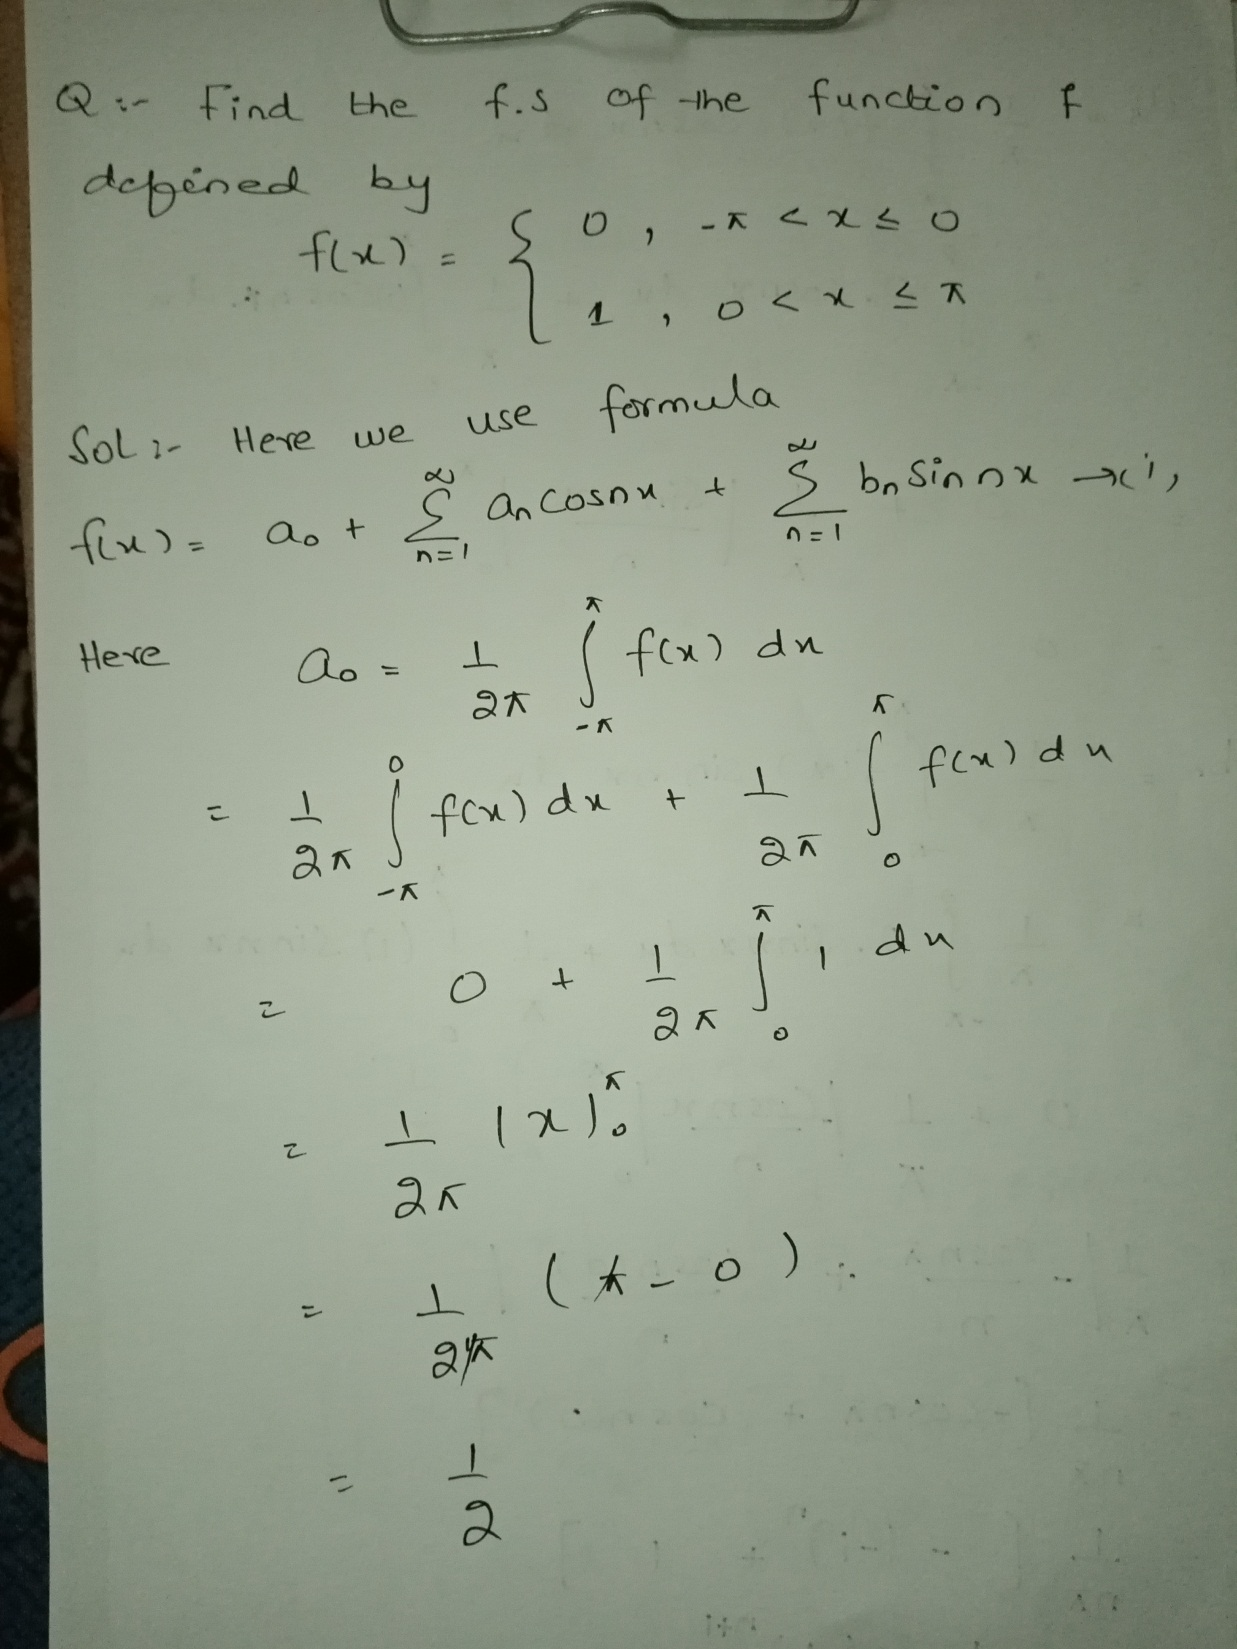 Q :- Find the f.s of the function f
defined by
f(x) = { 0 , -π < x ≤ 0
1 , 0 < x ≤ π
Sol :- Here we use formula
f(x) = a₀ + ∞Σn=1 aₙ cosnx + ∞Σn=1 bₙ Sin nx → (i)
Here a₀ = 1/2π ∫_{-π}^{π} f(x) dx
= 1/2π ∫_{-π}^{0} f(x) dx + 1/2π ∫_{0}^{π} f(x) dx
= 0 + 1/2π ∫_{0}^{π} 1 dx
= 1/2π |x|_{0}^{π}
= 1/2π (π - 0)
= 1/2